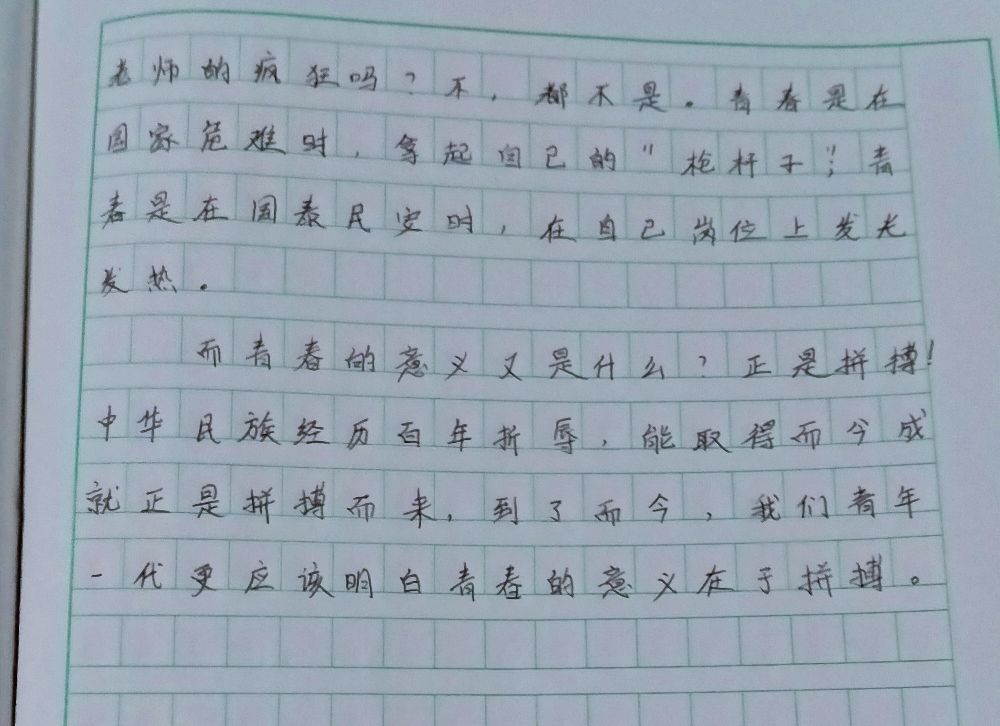 老师的疯狂吗？不，都不是。青春是在
国家危难时，拿起自己的“枪杆子”；青
春是在国泰民安时，在自己岗位上发光
发热。
而青春的意义又是什么？正是拼搏！
中华民族经历百年折辱，能取得而今成
就正是拼搏而来，到了而今，我们青年
一代更应该明白青春的意义在于拼搏。